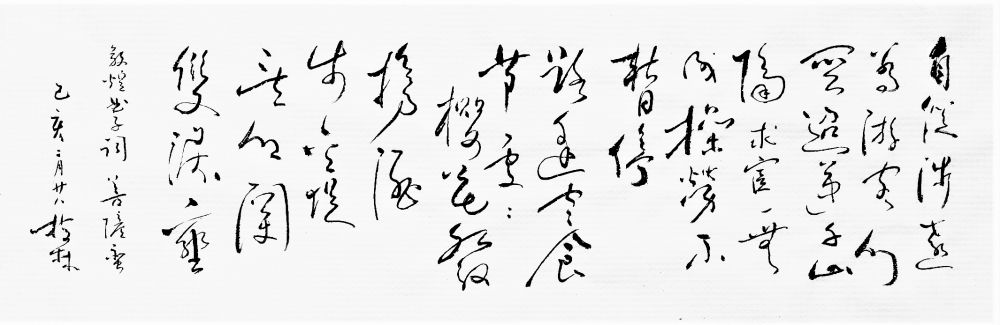 自從涉遠
為游客乡
關迢遞千山
隔求宦一無
成操勞不
暫停
路逢寒食
节處〻
櫻花發
携酒
步金堤
望乡關
雙淚垂
敦煌曲子詞 菩薩蛮
己亥二月廿八